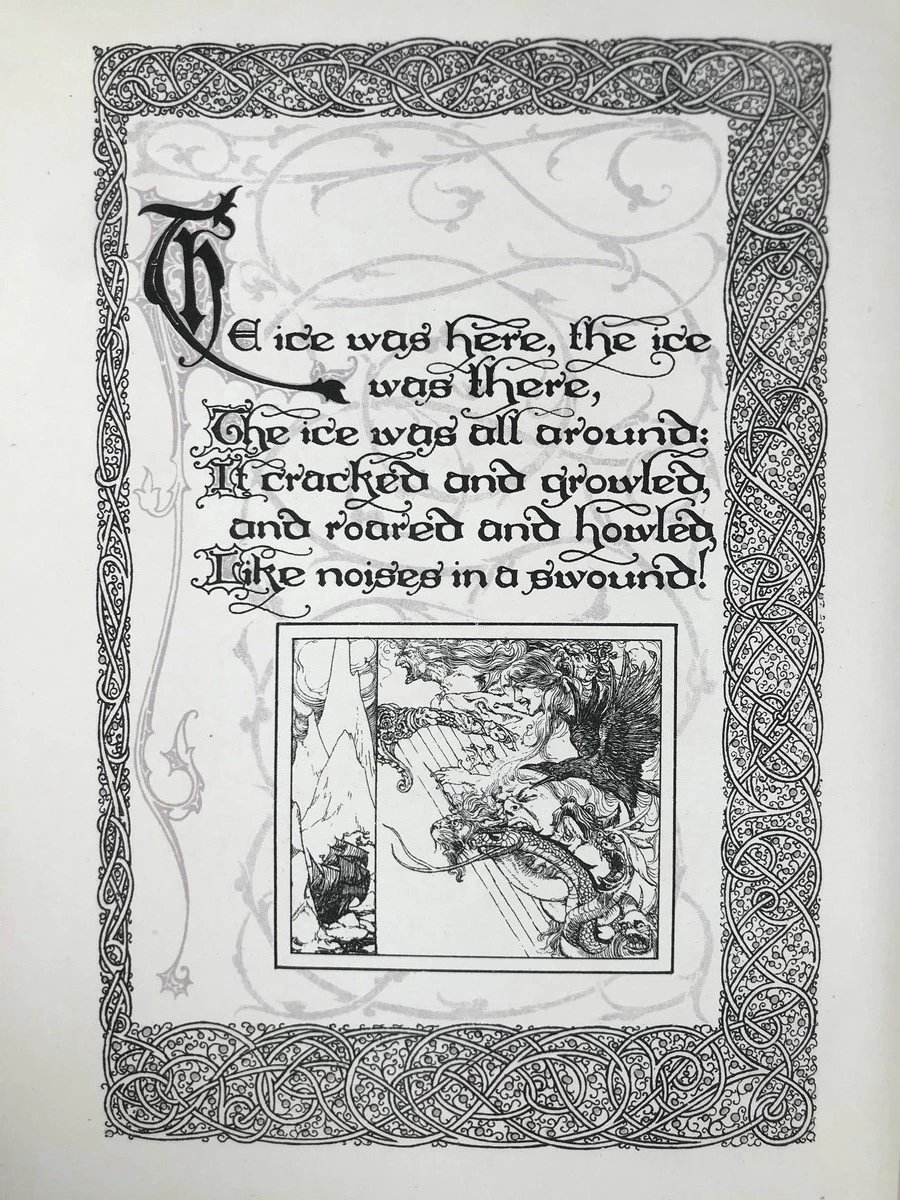 ThE ice was here, the ice
was there,
The ice was all around:
It cracked and growled,
and roared and howled,
Like noises in a swound!